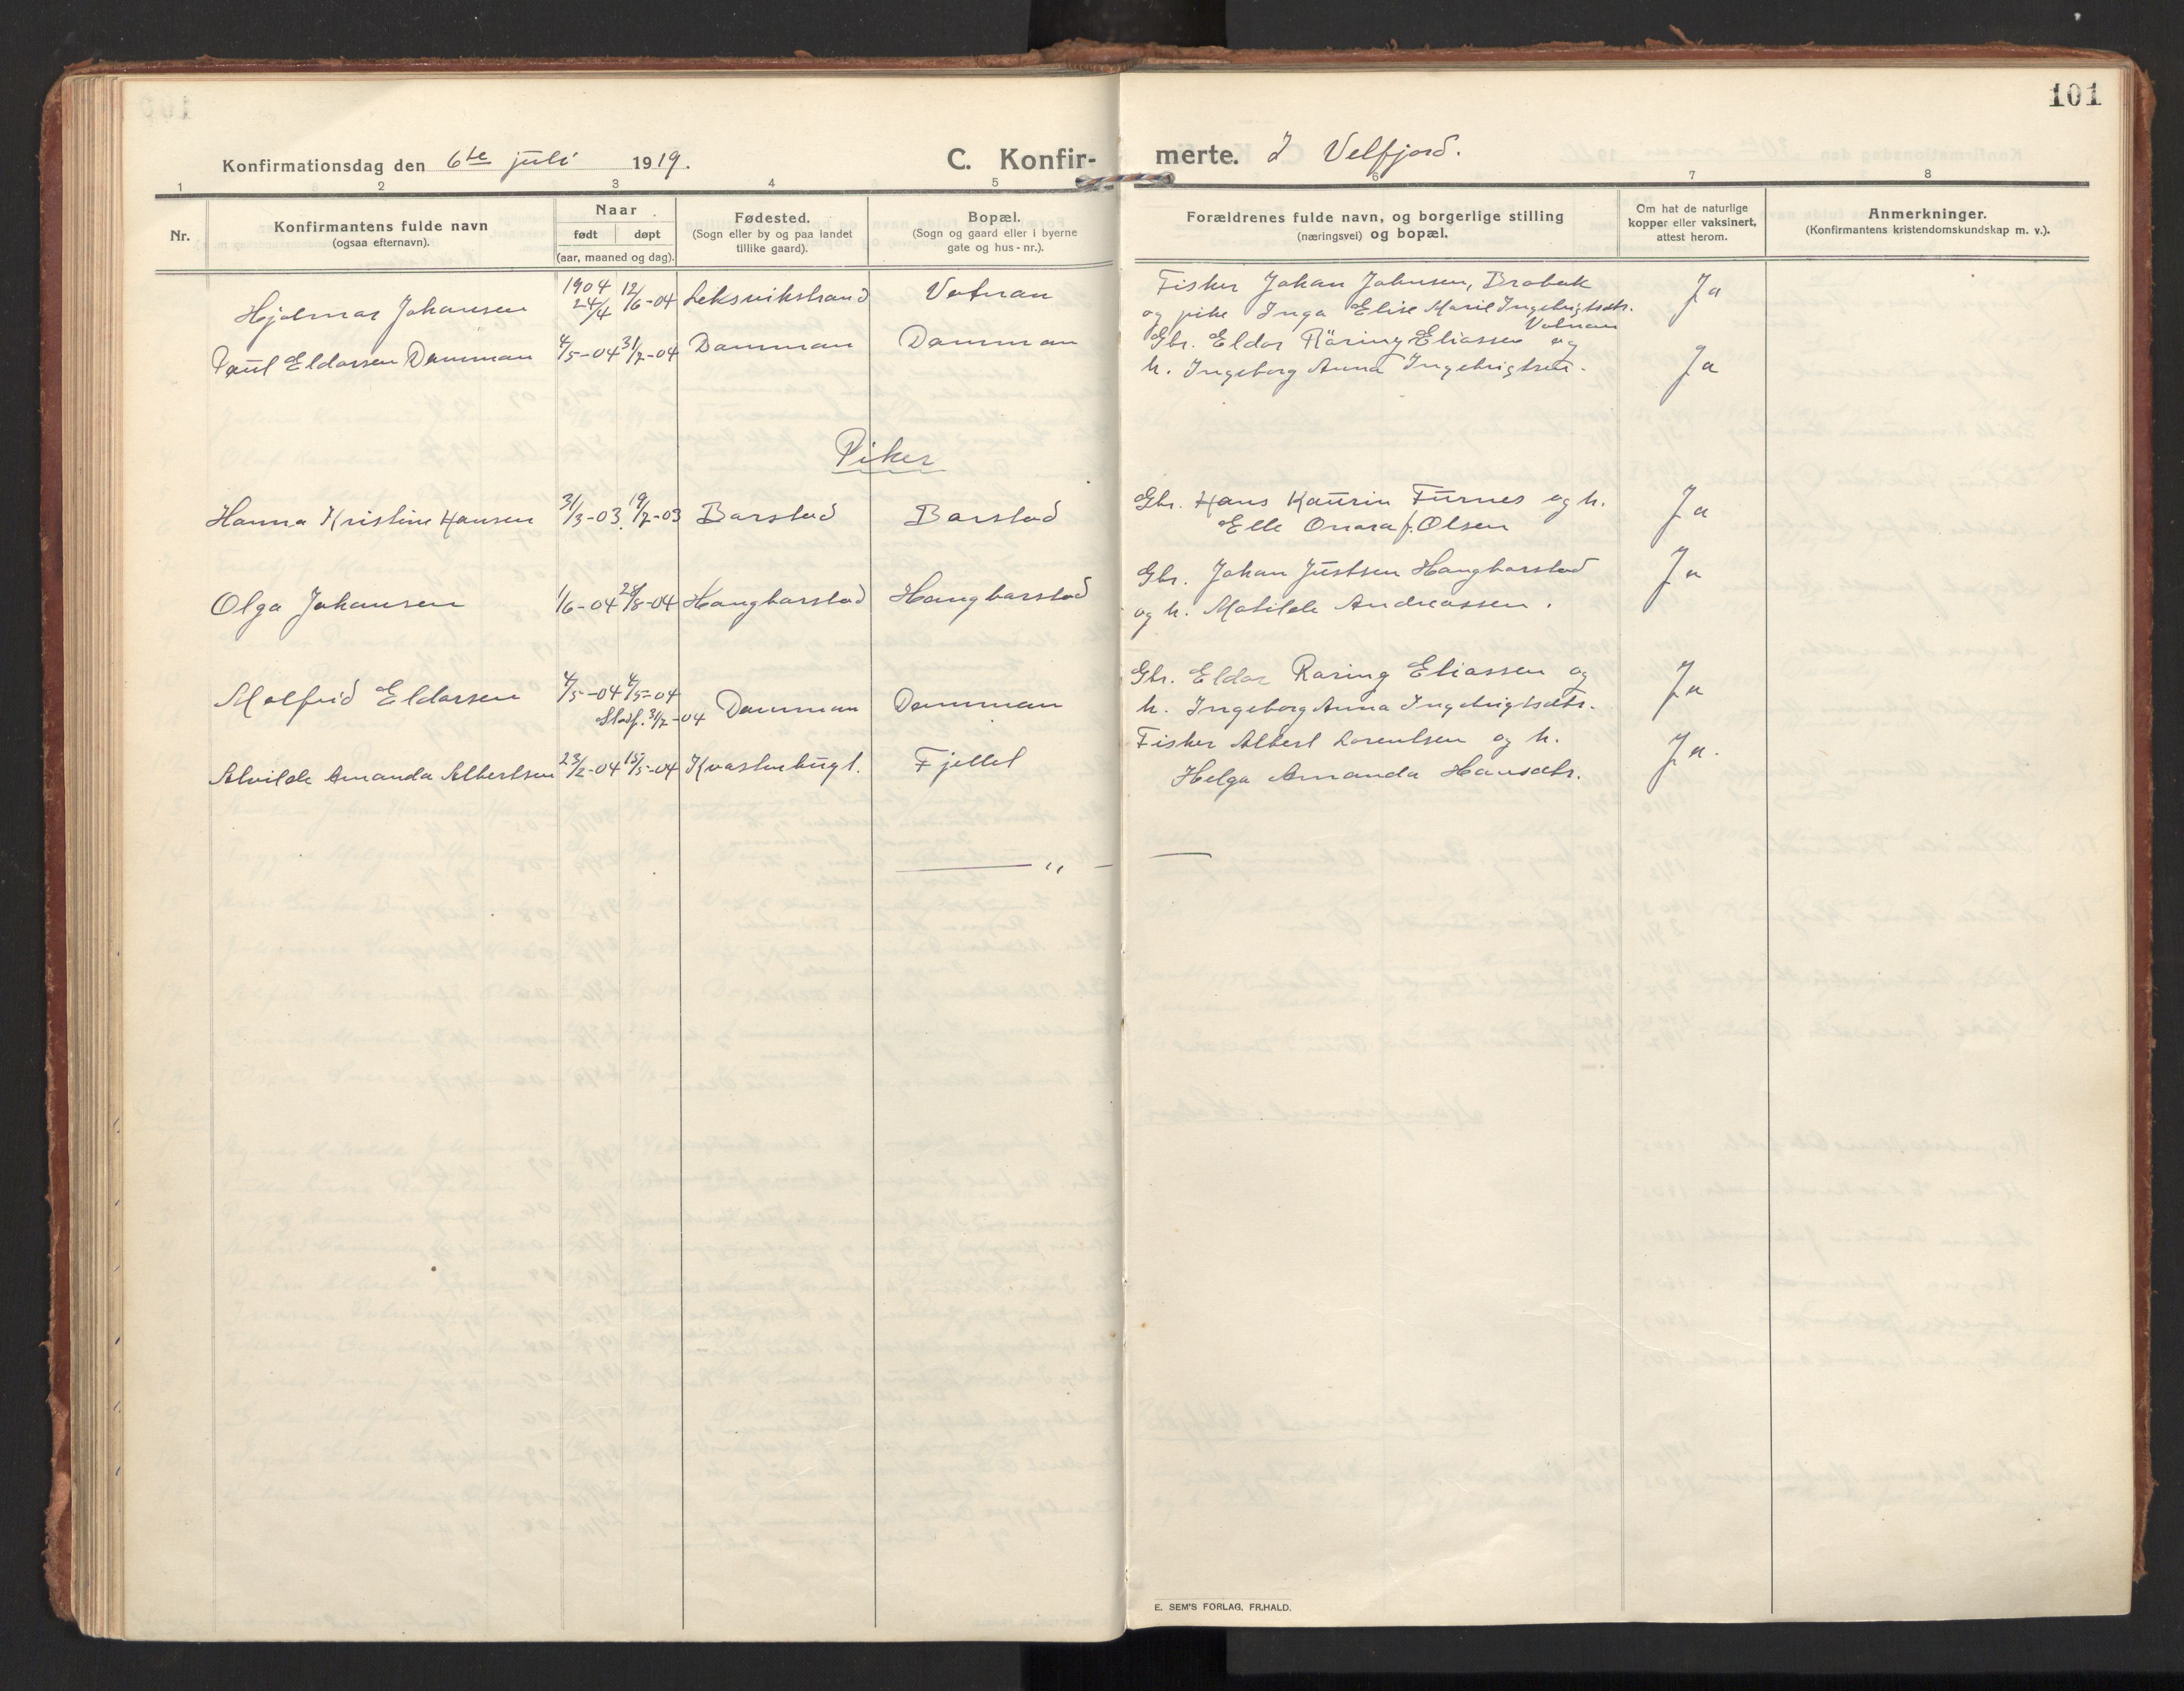 101
Konfirmationsdag den 6te juli 1919. C. Konfir- merte. I Velfjord.
1 2 3 4 5 6 7 8
Nr.
Konfirmantens fulde navn
(ogsaa efternavn).
Naar
født døpt
(aar, maaned og dag).
Fødested.
(Sogn eller by og paa landet
tillike gaard).
Bopæl.
(Sogn og gaard eller i byerne
gate og hus-nr.).
Forældrenes fulde navn, og borgerlige stilling
(næringsvei) og bopæl.
Om hat de naturlige
kopper eller vaksinert,
attest herom.
Anmerkninger.
(Konfirmantens kristendomskundskap m. v.).
Hjalmar Johansen 1904 24/4 12/6-04 Leksvikstrand Vatnan Fisker Johan Johnsen, Brabak Ja
og pike Inga Elise Marie Ingebrigtsdtr. Vatnan
Paul Eldorsen Damman 4/5-04 31/7-04 Damman Damman Gbr. Eldor Röring Eliassen og
h. Ingeborg Anna Ingebrigtsen. Ja
Piker
Hanna Kristine Hansen 31/3-03. 19/7-03 Barstad Barstad Gbr. Hans Kaurin Furnes og h. Ja
Elle Onara f. Olsen
Olga Johansen 1/6-04 28/8-04 Haugbarstad Haugbarstad Gbr. Johan Justsen Haugbarstad Ja
og h. Matilde Andreassen.
Malfrid Eldorsen 4/5-04 4/5-04 Damman Damman Gbr. Eldor Roring Eliassen og Ja
Stadf. 31/7-04 h. Ingeborg Anna Ingebrigtsdtr.
Alvilde Amanda Albertsen 23/2-04 15/5-04 Kvastenbugt. Fjellet Fisker Albert Lorentsen og h. Ja.
Helga Amanda Hansdtr.
— „ —
E. SEM'S FORLAG, FR.HALD.